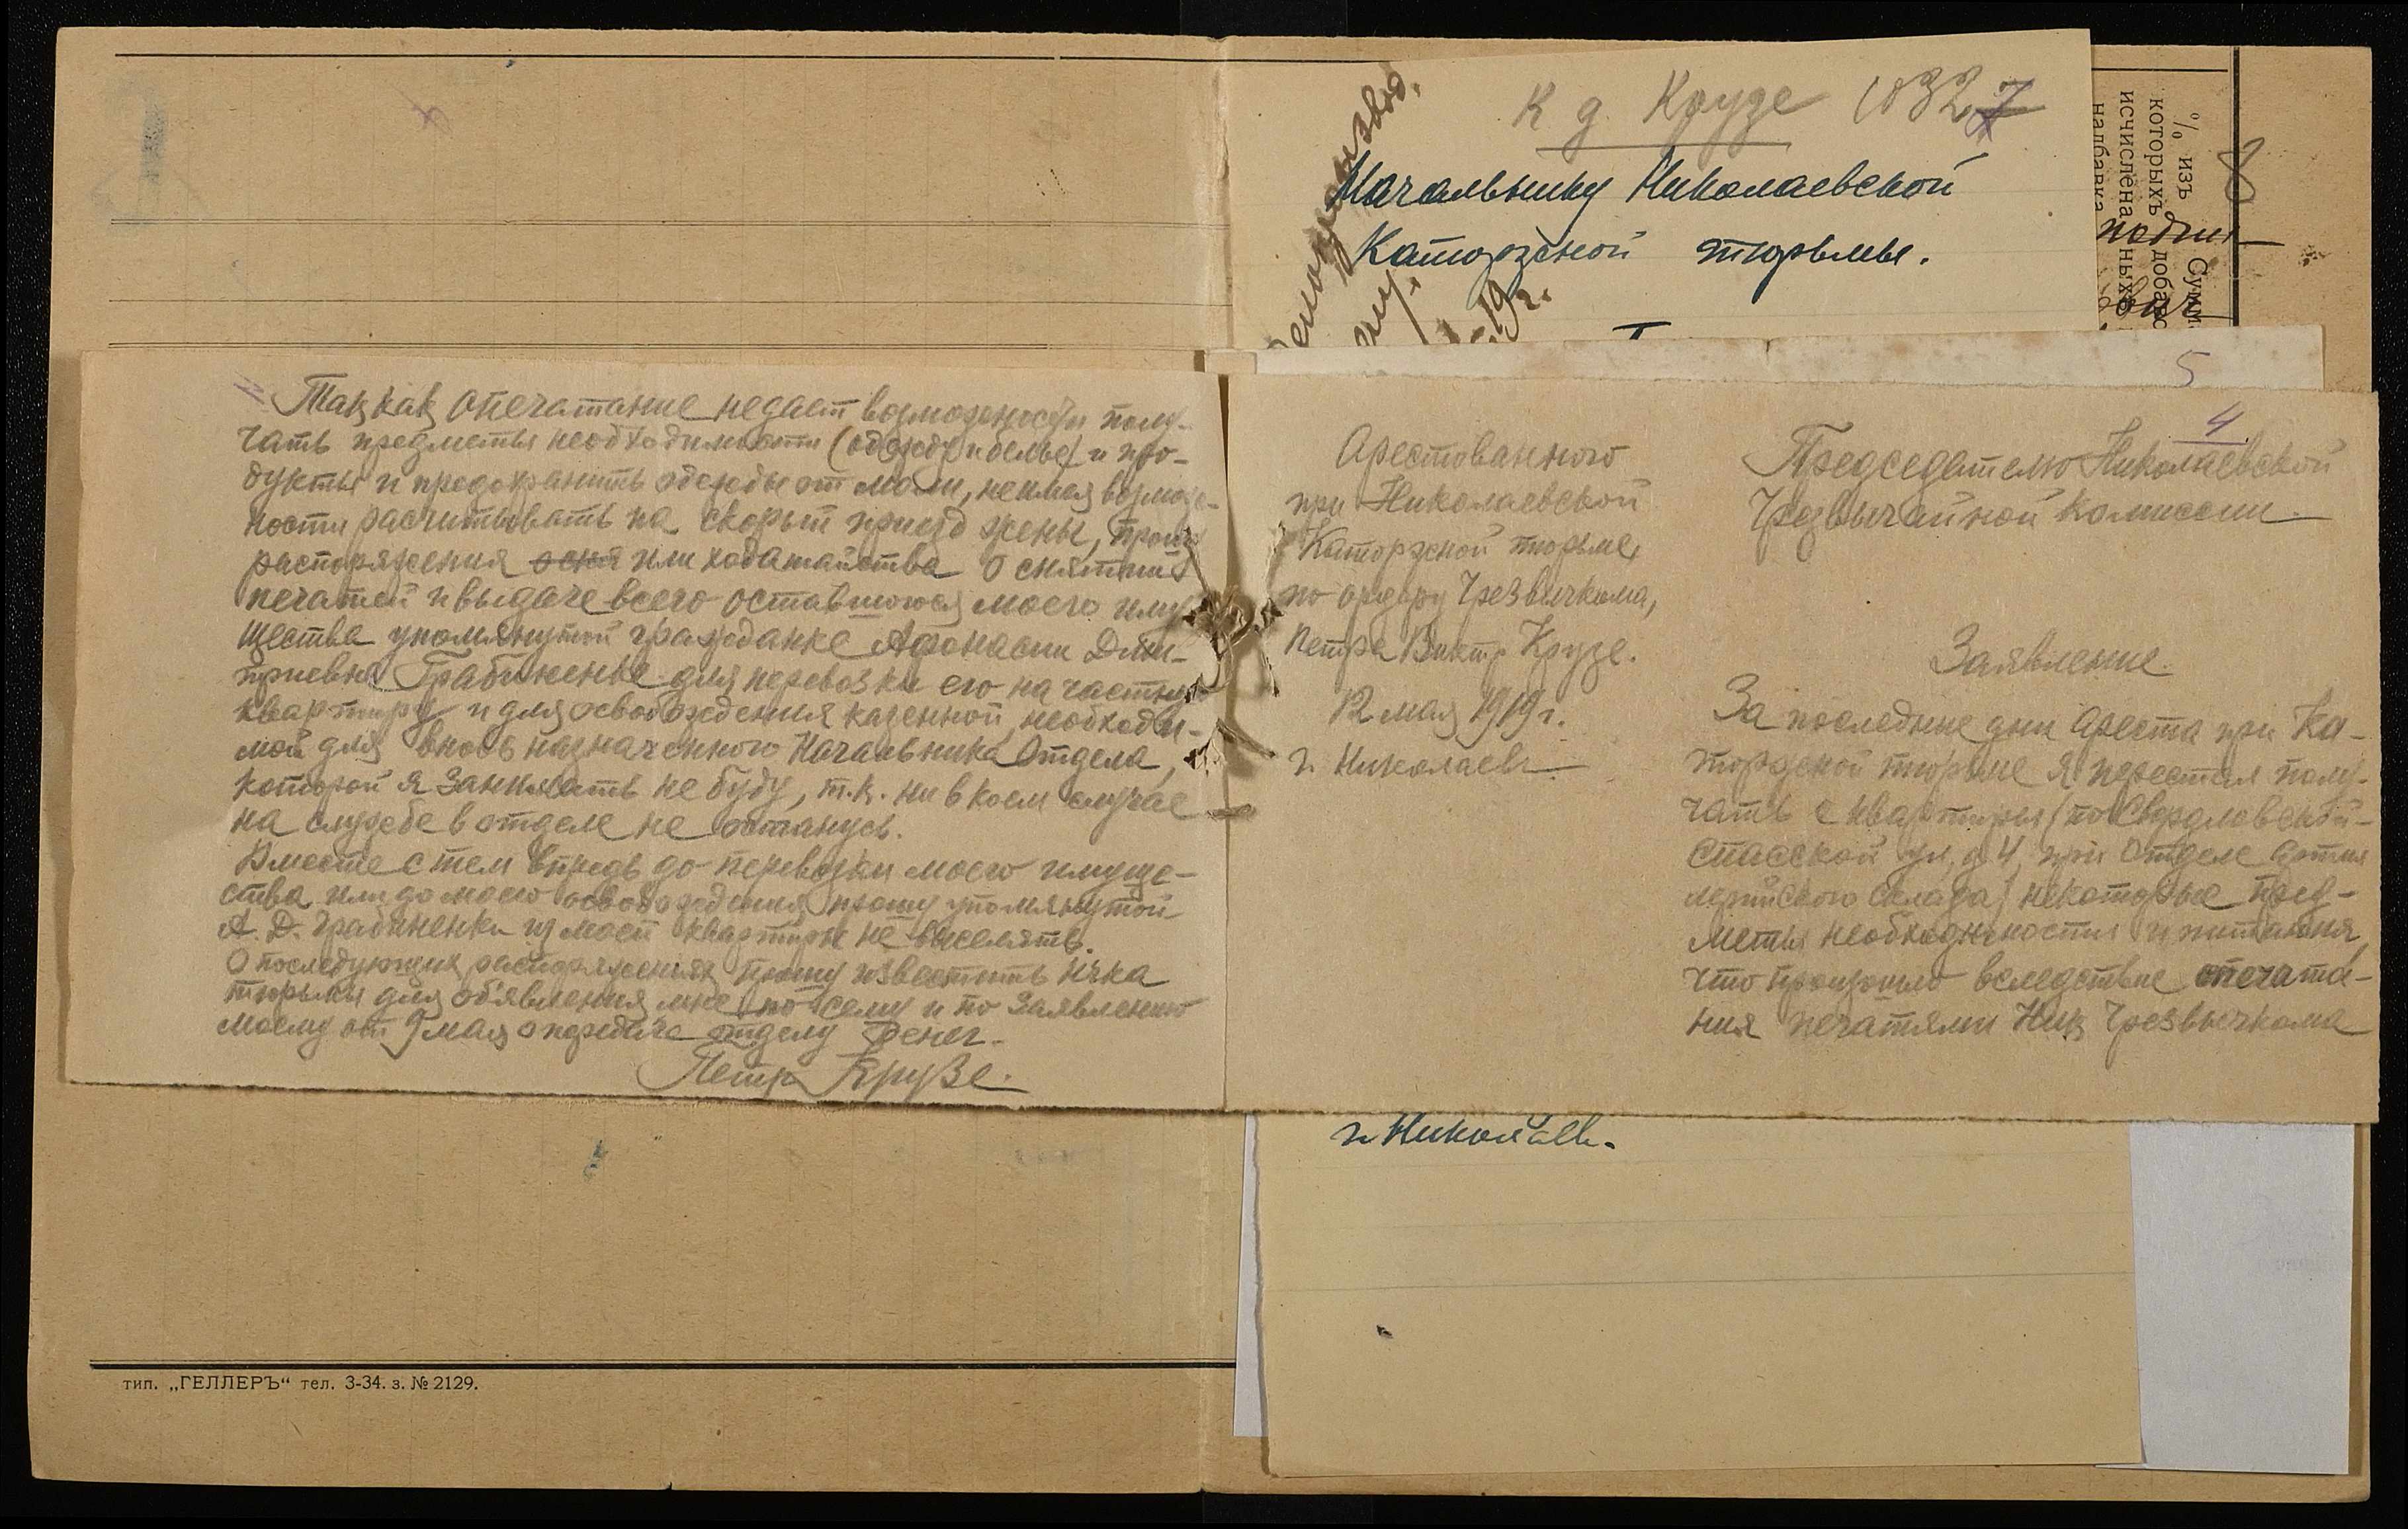 К д. Крузе 1032 7
Начальнику Николаевской
Каторжной тюрьмы.
19 г.
% изъ
которыхъ
исчислена
надбавка
Сумм
добавоч
ныхъ
8
5
4
Председателю Николаевской
Чрезвычайной Комиссии.
Арестованного
при Николаевской
Каторжной тюрьме,
по ордеру Чрезвычкома,
Петра Викт. Крузе.
12 мая 1919 г.
г. Николаев.
Заявление.
За последние дни ареста при Ка-
торжной тюрьме я перестал полу-
чать с квартиры (по Свердловской-
Спасской ул, д. 4, при Отделе Артил
лерийского склада) некоторые пред-
меты необходимости и питания,
что произошло вследствие опечата-
ния печатями Ник Чрезвычкома
Так как опечатание недает возможности полу-
чать предметы необходимости (одежду и белье) и про-
дукты и предохранить одежды от моли, неимея возмож-
ности расчитывать на скорый приезд жены, прошу
распоряжения или ходатайства о снятии
печатей и выдаче всего оставшегося моего иму
щества упомянутой гражданке Афонасии Дми-
триевне Грабиненке для перевозки его на частную
квартиру и для освобождения казенной, необходи-
мой для вновь назначенного Начальника Отдела,
которой я занимать не буду, т.к. ни в коем случае
на службе в отделе не останусь.
Вместе с тем впредь до перевозки моего имуще-
ства или до моего освобождения прошу упомянутой
А. Д. Грабиненки из моей квартиры не выселять.
О последующих распоряжениях прошу известить Нчка
тюрьмы для об'явления мне по сему и по заявлению
моему от 9 мая о передаче отделу денег.
Петр Крузе.
г. Николаев.
тип. „ГЕЛЛЕРЪ“ тел. 3-34. з. № 2129.